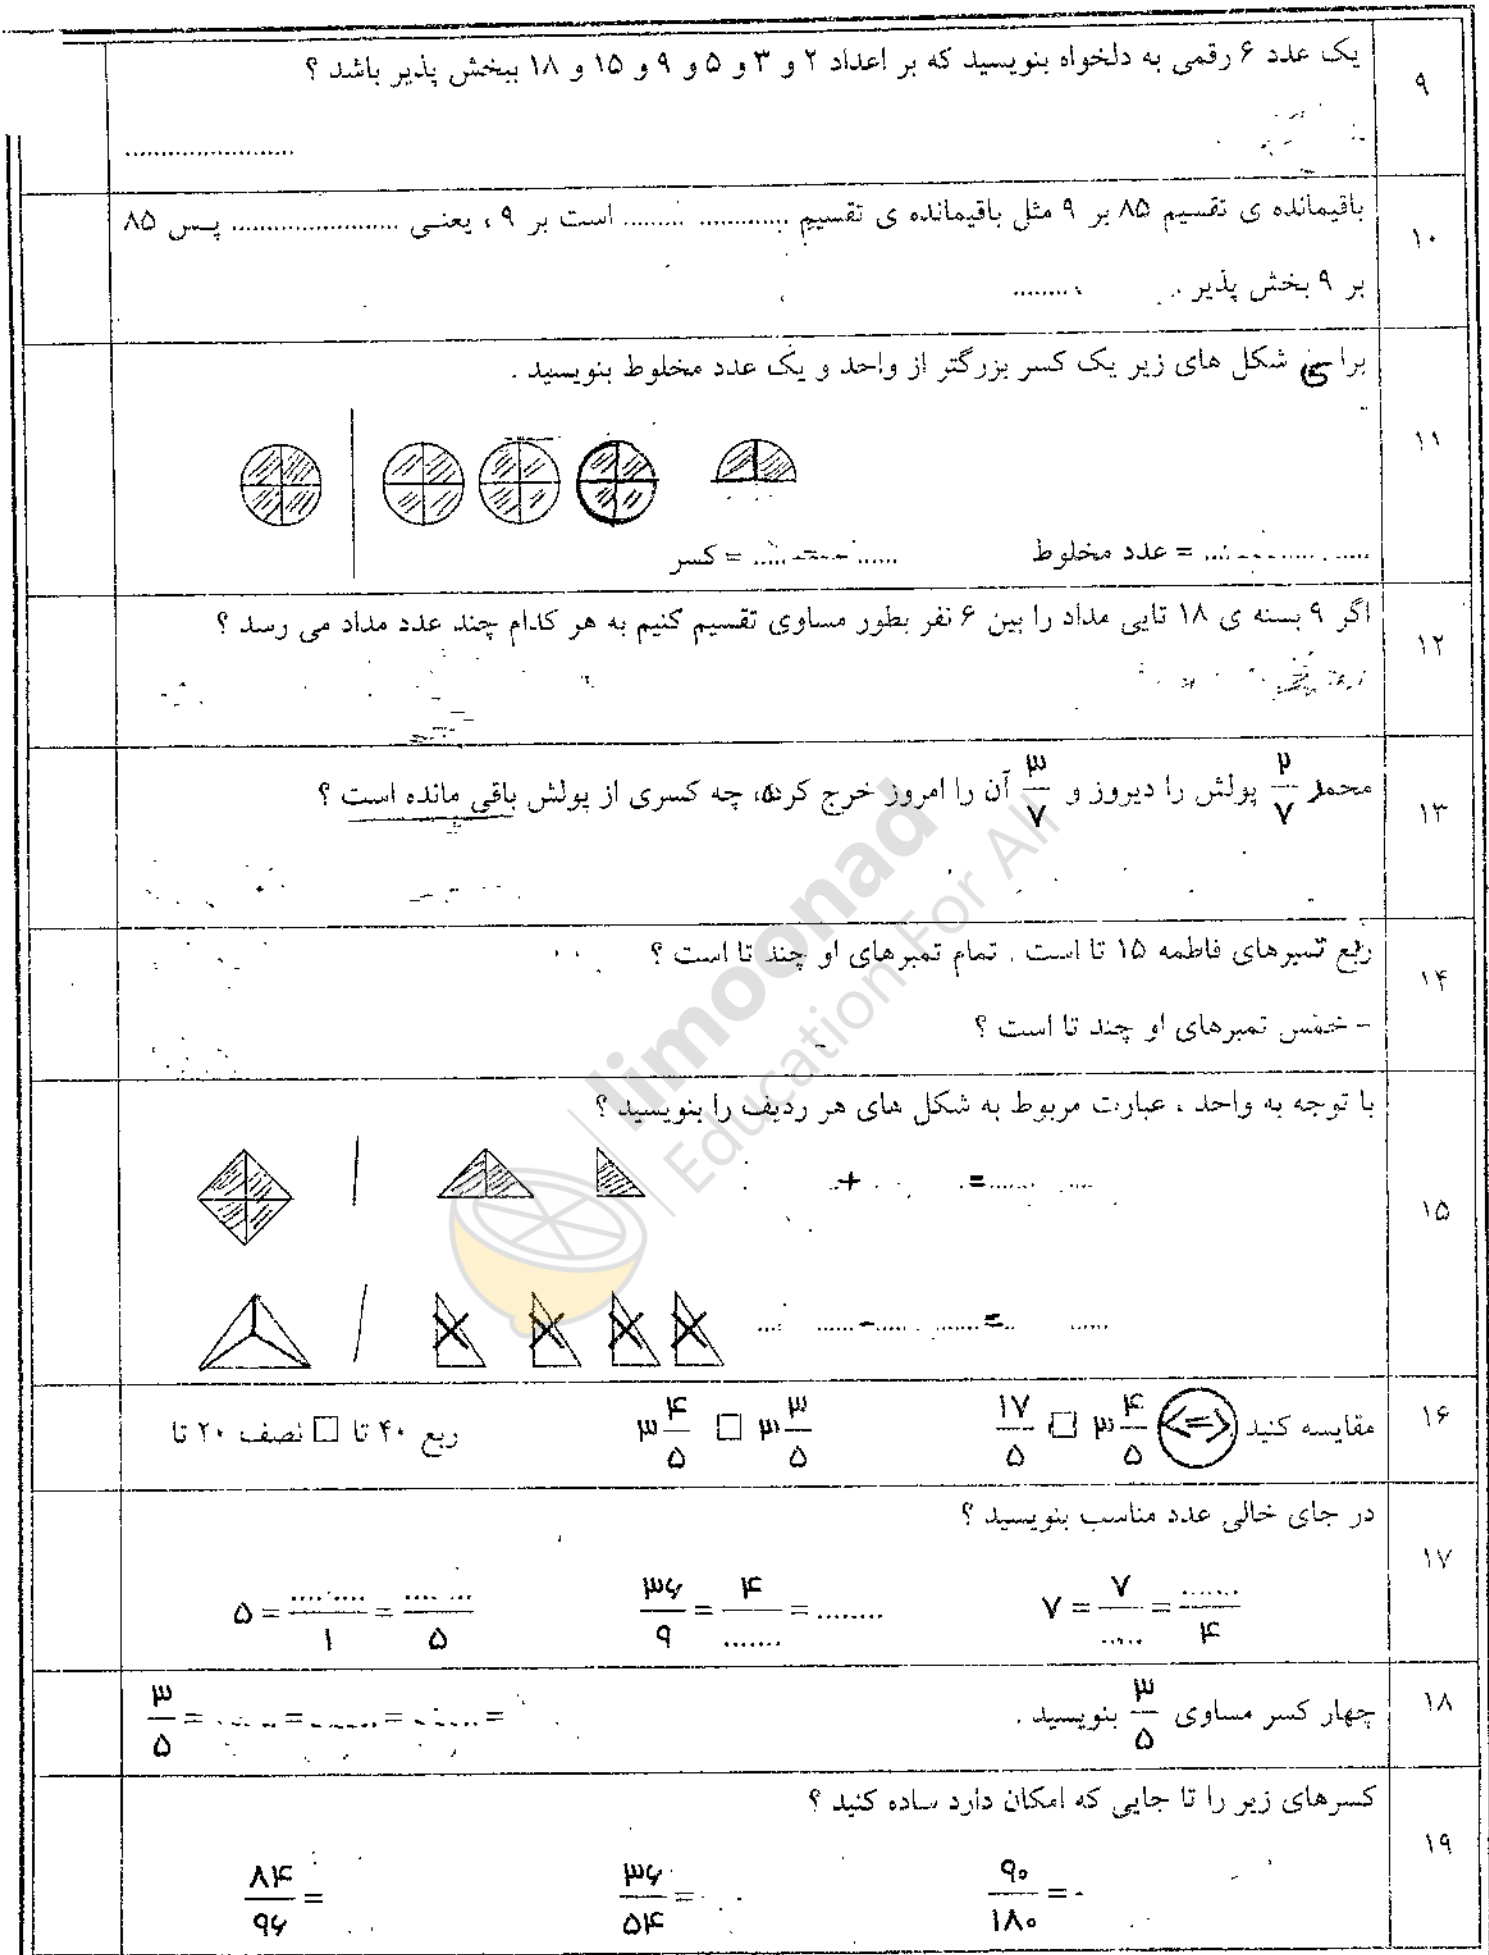 ۹
یک عدد ۶ رقمی به دلخواه بنویسید که بر اعداد ۲ و ۳ و ۵ و ۹ و ۱۵ و ۱۸ بیخش پذیر باشد ؟
........................
۱۰
باقیمانده ی تقسیم ۸۵ بر ۹ مثل باقیمانده ی تقسیم ............ ......... است بر ۹ ، یعنی ........................ پس ۸۵
بر ۹ بخش پذیر ..........
۱۱
برای شکل های زیر یک کسر بزرگتر از واحد و یک عدد مخلوط بنویسید .
کسر = ............... عدد مخلوط = ...............
۱۲
اگر ۹ بسته ی ۱۸ تایی مداد را بین ۶ نفر بطور مساوی تقسیم کنیم به هر کدام چند عدد مداد می رسد ؟
۱۳
محمد ۲/۷ پولش را دیروز و ۳/۷ آن را امروز خرج کرده، چه کسری از پولش باقی مانده است ؟
۱۴
ربع تمبرهای فاطمه ۱۵ تا است . تمام تمبرهای او چند تا است ؟
- خمس تمبرهای او چند تا است ؟
۱۵
با توجه به واحد ، عبارت مربوط به شکل های هر ردیف را بنویسید ؟
+ = ...........
..... ......-...... ......=... ......
۱۶
مقایسه کنید <=> ۳ ۴/۵ □ ۱۷/۵ ۳ ۴/۵ □ ۳ ۳/۵ ربع ۴۰ تا □ نصف ۲۰ تا
۱۷
در جای خالی عدد مناسب بنویسید ؟
۵ = ......../۱ = ......../۵ ۳۶/۹ = ۴/....... = ........ ۷ = ۷/..... = ......./۴
۱۸
چهار کسر مساوی ۳/۵ بنویسید .
۳/۵ = ....... = ....... = ....... =
۱۹
کسرهای زیر را تا جایی که امکان دارد ساده کنید ؟
۸۴/۹۶ = ۳۶/۵۴ = ۹۰/۱۸۰ =
limoonad
Education For All